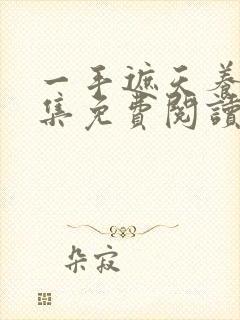 一手遮天养
集免費閱讀
朵寂